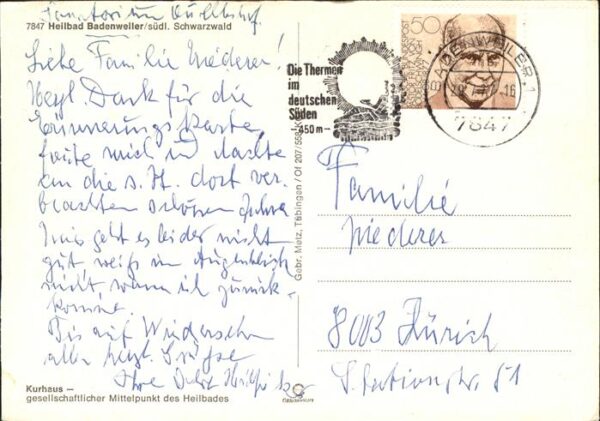 Sanatorium Quellenhof.
7847 Heilbad Badenweiler/südl. Schwarzwald
Liebe Familie Niederer!
Herzl. Dank für die
Erinnerungskarte,
freute mich u dachte
an die s. Zt. dort ver-
brachten schönen Jahre
Uns geht es leider nicht
gut, weiss im Augenblick
nicht wann ich zurück-
komme.
Bis auf Wiedersehn
allen herzl. Grüsse
Ihre
Kurhaus –
gesellschaftlicher Mittelpunkt des Heilbades
Gebr. Metz, Tübingen
Die Thermen
im
deutschen
Süden
-450 m-
50
BADENWEILER 1
7847
Familie
Niederer
8003 Zürich
Stationsstr. 51